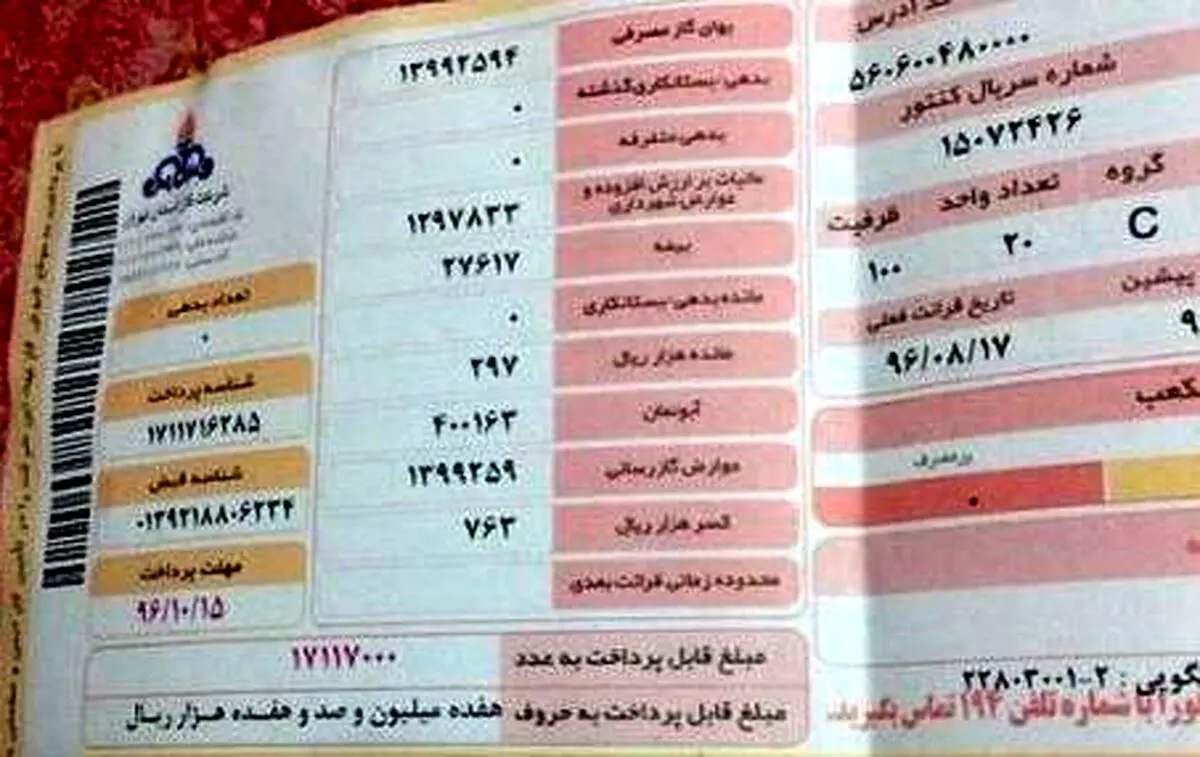 کد آدرس
۵۶۰۶۰۰۴۸۰۰۰۰
شماره سریال کنتور
۱۵۰۷۲۴۲۶
گروه تعداد واحد ظرفیت
C ۲۰ ۱۰۰
پیشین تاریخ قرائت فعلی
۹ ۹۶/۰۸/۱۷
پرمصرف
۰
گویی : ۲-۲۲۸۰۳۰۰۱
را با شماره تلفن ۱۹۴ تماس بگیرید.
بهای گاز مصرفی ۱۳۹۹۲۵۹۴
بدهی-بستانکاری گذشته ۰
بدهی متفرقه ۰
مالیات بر ارزش افزوده و
عوارض شهرداری ۱۲۹۷۸۳۳
بیمه ۲۷۶۱۷
مانده بدهی-بستانکاری ۰
مانده هزار ریال ۲۹۷
آبونمان ۴۰۰۱۶۳
عوارض گازرسانی ۱۳۹۹۲۵۹
کسر هزار ریال ۷۶۳
محدوده زمانی قرائت بعدی
شرکت گاز استان تهران
تعداد بدهی
۰
شناسه پرداخت
۱۷۱۱۷۱۶۲۸۵
شناسه قبض
۰۱۳۹۲۱۸۸۰۶۲۳۴
مهلت پرداخت
۹۶/۱۰/۱۵
مبلغ قابل پرداخت به عدد ۱۷۱۱۷۰۰۰
مبلغ قابل پرداخت به حروف هفده میلیون و صد و هفده هزار ریال